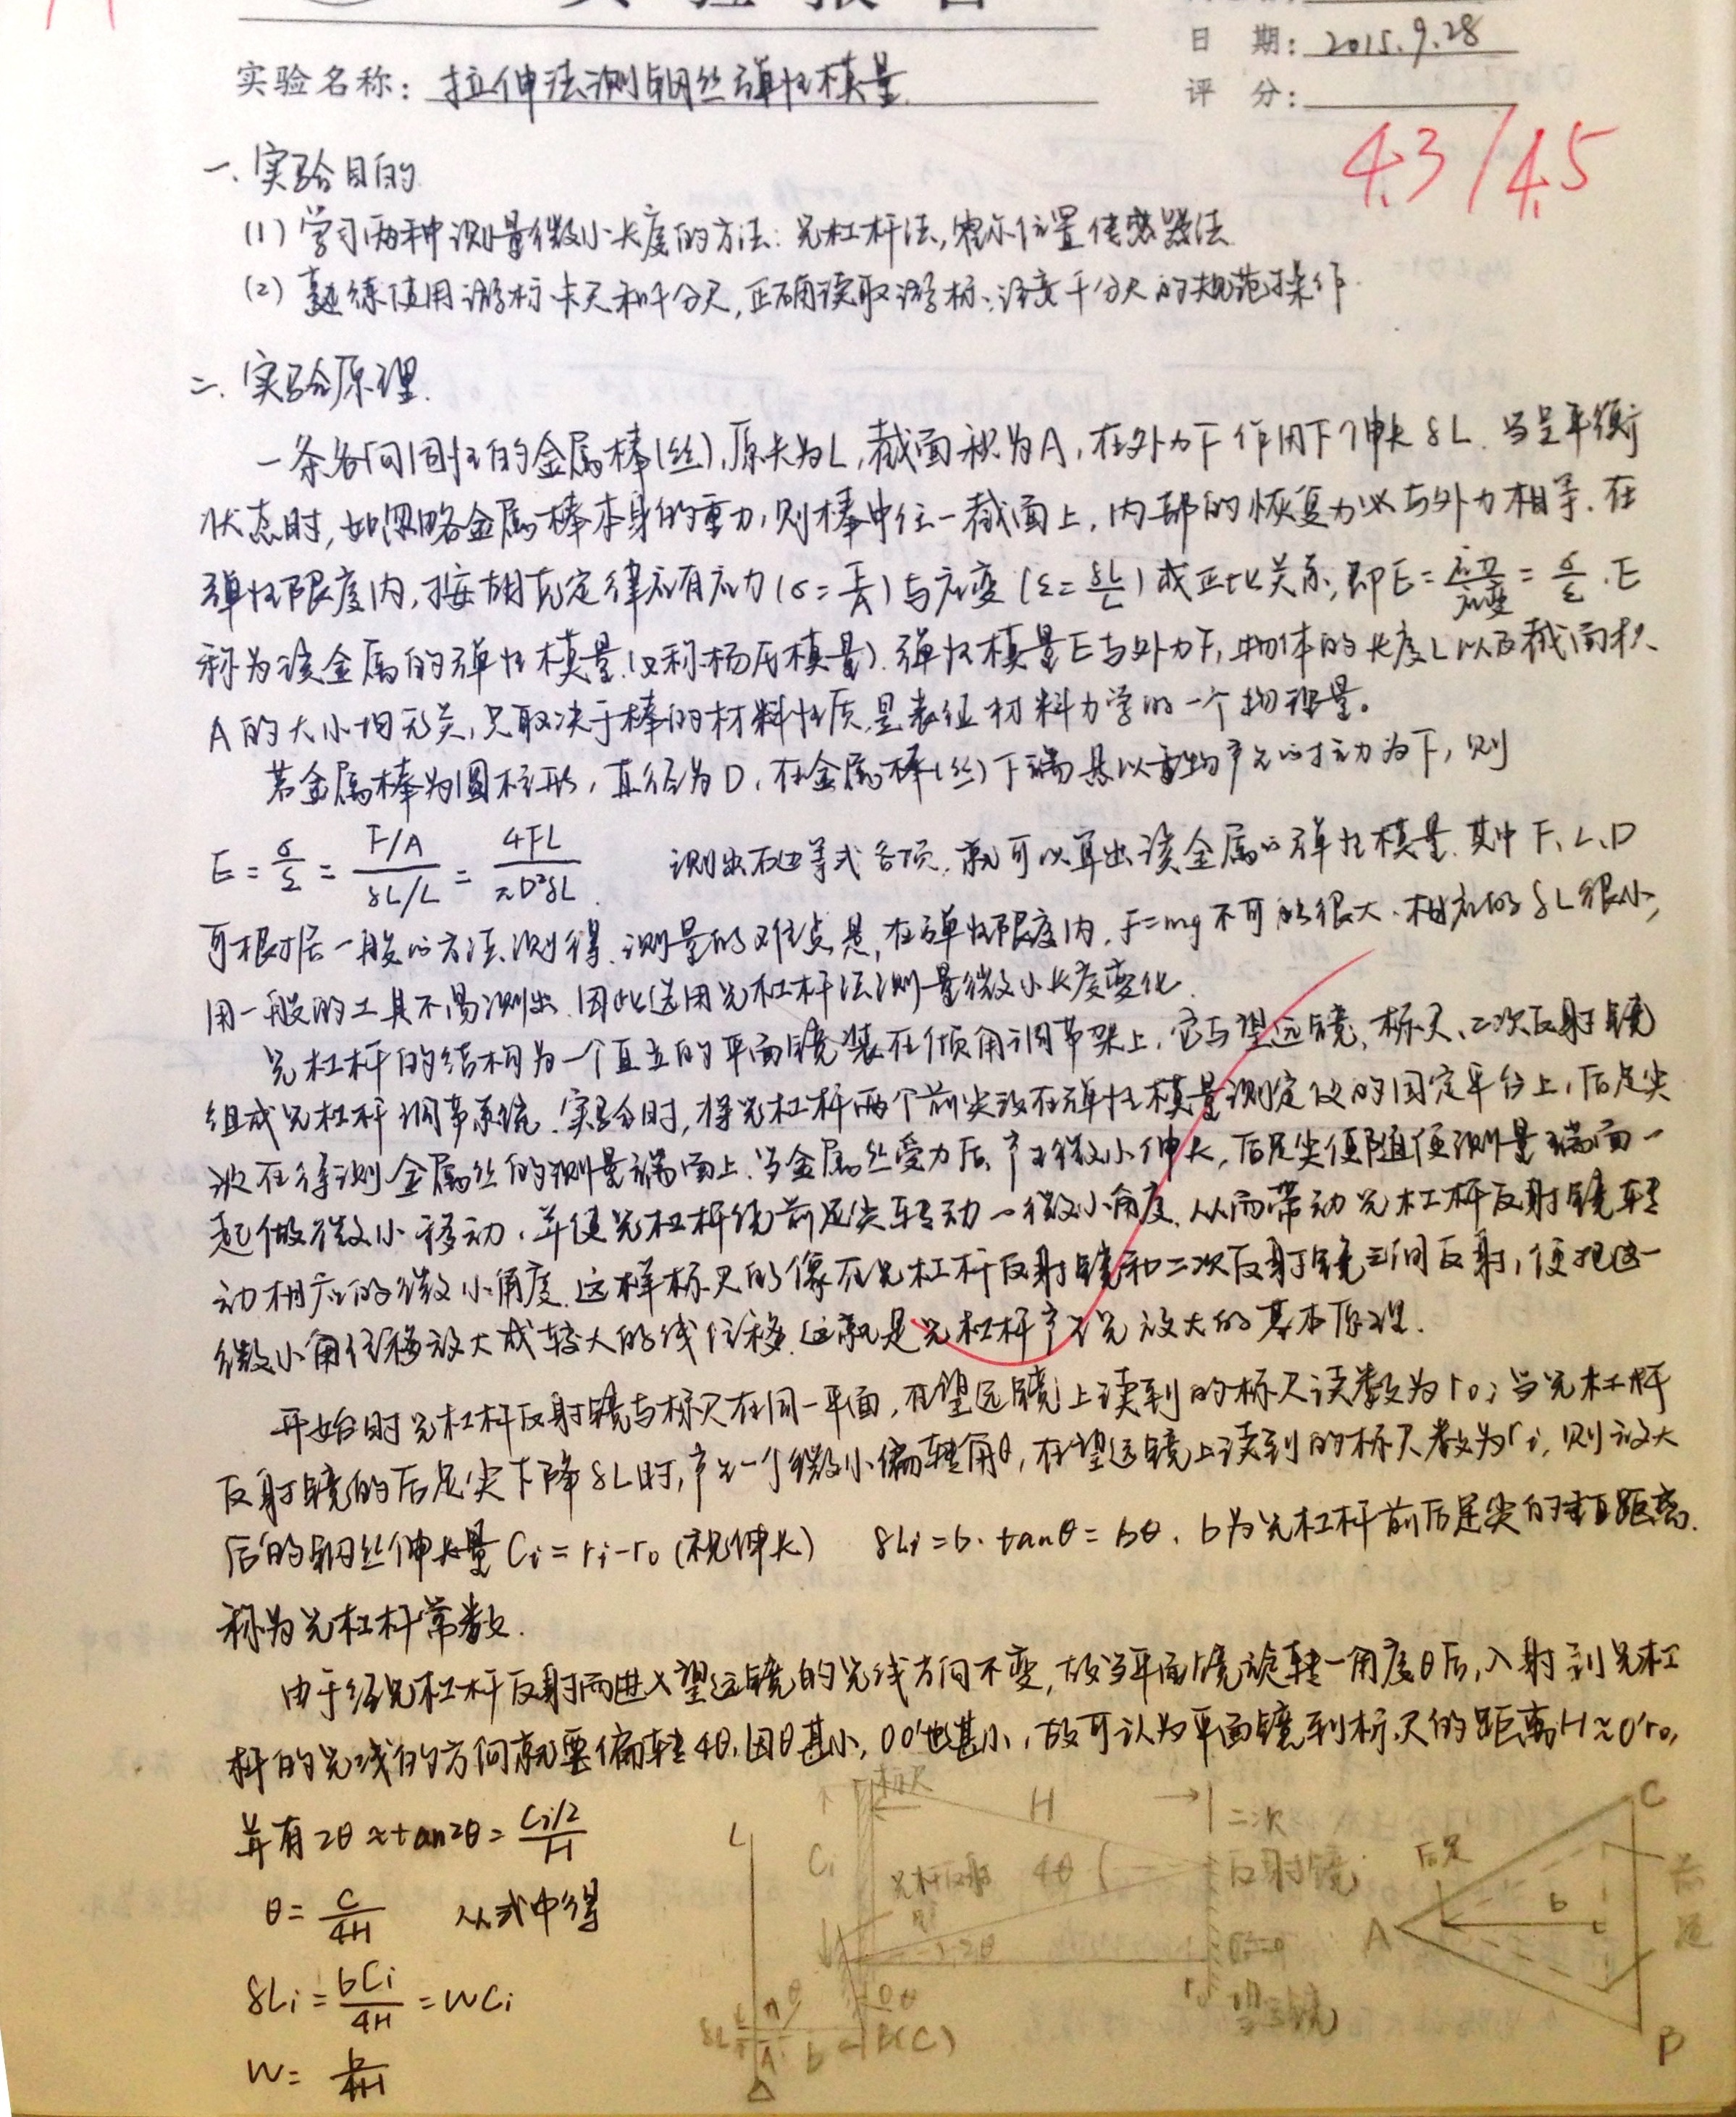 实验报告
日 期: 2015.9.28
实验名称: 拉伸法测钢丝弹性模量
评 分:
4.3/4.5
一. 实验目的
(1) 学习两种测量微小长度的方法: 光杠杆法, 霍尔位置传感器法
(2) 熟练使用游标卡尺和千分尺, 正确读取游标, 注意千分尺的规范操作.
二. 实验原理.
一条各向同性的金属棒(丝), 原长为L, 截面积为A, 在外力F作用下伸长δL. 当呈平衡
状态时, 如忽略金属棒本身的重力, 则棒中任一截面上, 内部的恢复力必与外力相等. 在
弹性限度内, 按胡克定律应有应力(σ=F/A)与应变(ε=δL/L)成正比关系, 即E=应力/应变=σ/ε. E
称为该金属的弹性模量(又称杨氏模量). 弹性模量E与外力F, 物体的长度L以及截面积
A的大小均无关, 只取决于棒的材料性质, 是表征材料力学的一个物理量。
若金属棒为圆柱形, 直径为D, 在金属棒(丝)下端悬以重物产生的拉力为F, 则
E=σ/ε=(F/A)/(δL/L)=4FL/πD²δL. 测出右边等式各项, 就可以算出该金属的弹性模量. 其中F、L、D
可根据一般的方法测得. 测量的难点是, 在弹性限度内, F=mg不可能很大. 相应的δL很小,
用一般的工具不易测出. 因此选用光杠杆法测量微小长度变化.
光杠杆的结构为一个直立的平面镜装在倾角调节架上, 它与望远镜、标尺、二次反射镜
组成光杠杆调节系统. 实验时, 将光杠杆两个前尖放在弹性模量测定仪的固定平台上, 后足尖
放在待测金属丝的测量端面上. 当金属丝受力后, 产生微小伸长, 后足尖便随便测量端面一
起做微小移动, 并使光杠杆绕前足尖转动一微小角度, 从而带动光杠杆反射镜转
动相应的微小角度. 这样标尺的像在光杠杆反射镜和二次反射镜之间反射, 便把这一
微小角位移放大成较大的线位移. 这就是光杠杆产生光放大的基本原理.
开始时光杠杆反射镜与标尺在同一平面, 在望远镜上读到的标尺读数为r₀; 当光杠杆
反射镜的后足尖下降δL时, 产生一个微小偏转角θ, 在望远镜上读到的标尺数为rᵢ, 则放大
后的钢丝伸长量Cᵢ=rᵢ-r₀(视伸长) δLᵢ=b·tanθ=bθ. b为光杠杆前后足尖的垂直距离.
称为光杠杆常数.
由于经光杠杆反射而进入望远镜的光线方向不变, 故当平面镜旋转一角度θ后, 入射到光杠
杆的光线的方向就要偏转4θ. 因θ甚小, OO'也甚小, 故可认为平面镜到标尺的距离H≈O'r₀,
并有2θ≈tan2θ=(Cᵢ/2)/H
θ=C/4H 从式中得
δLᵢ=bCᵢ/4H=WCᵢ
W=b/4H
标尺
H
二次
反射镜
Cᵢ
4θ
2θ
L
θ
n
δL
A
b
B(C)
r₀
望远镜
C
后足
b
A
前
足
B